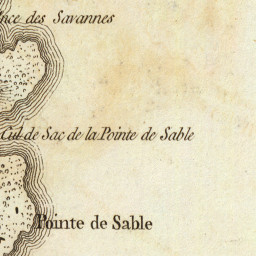 nce des Savannes
Cul de Sac de la Pointe de Sable
Pointe de Sable